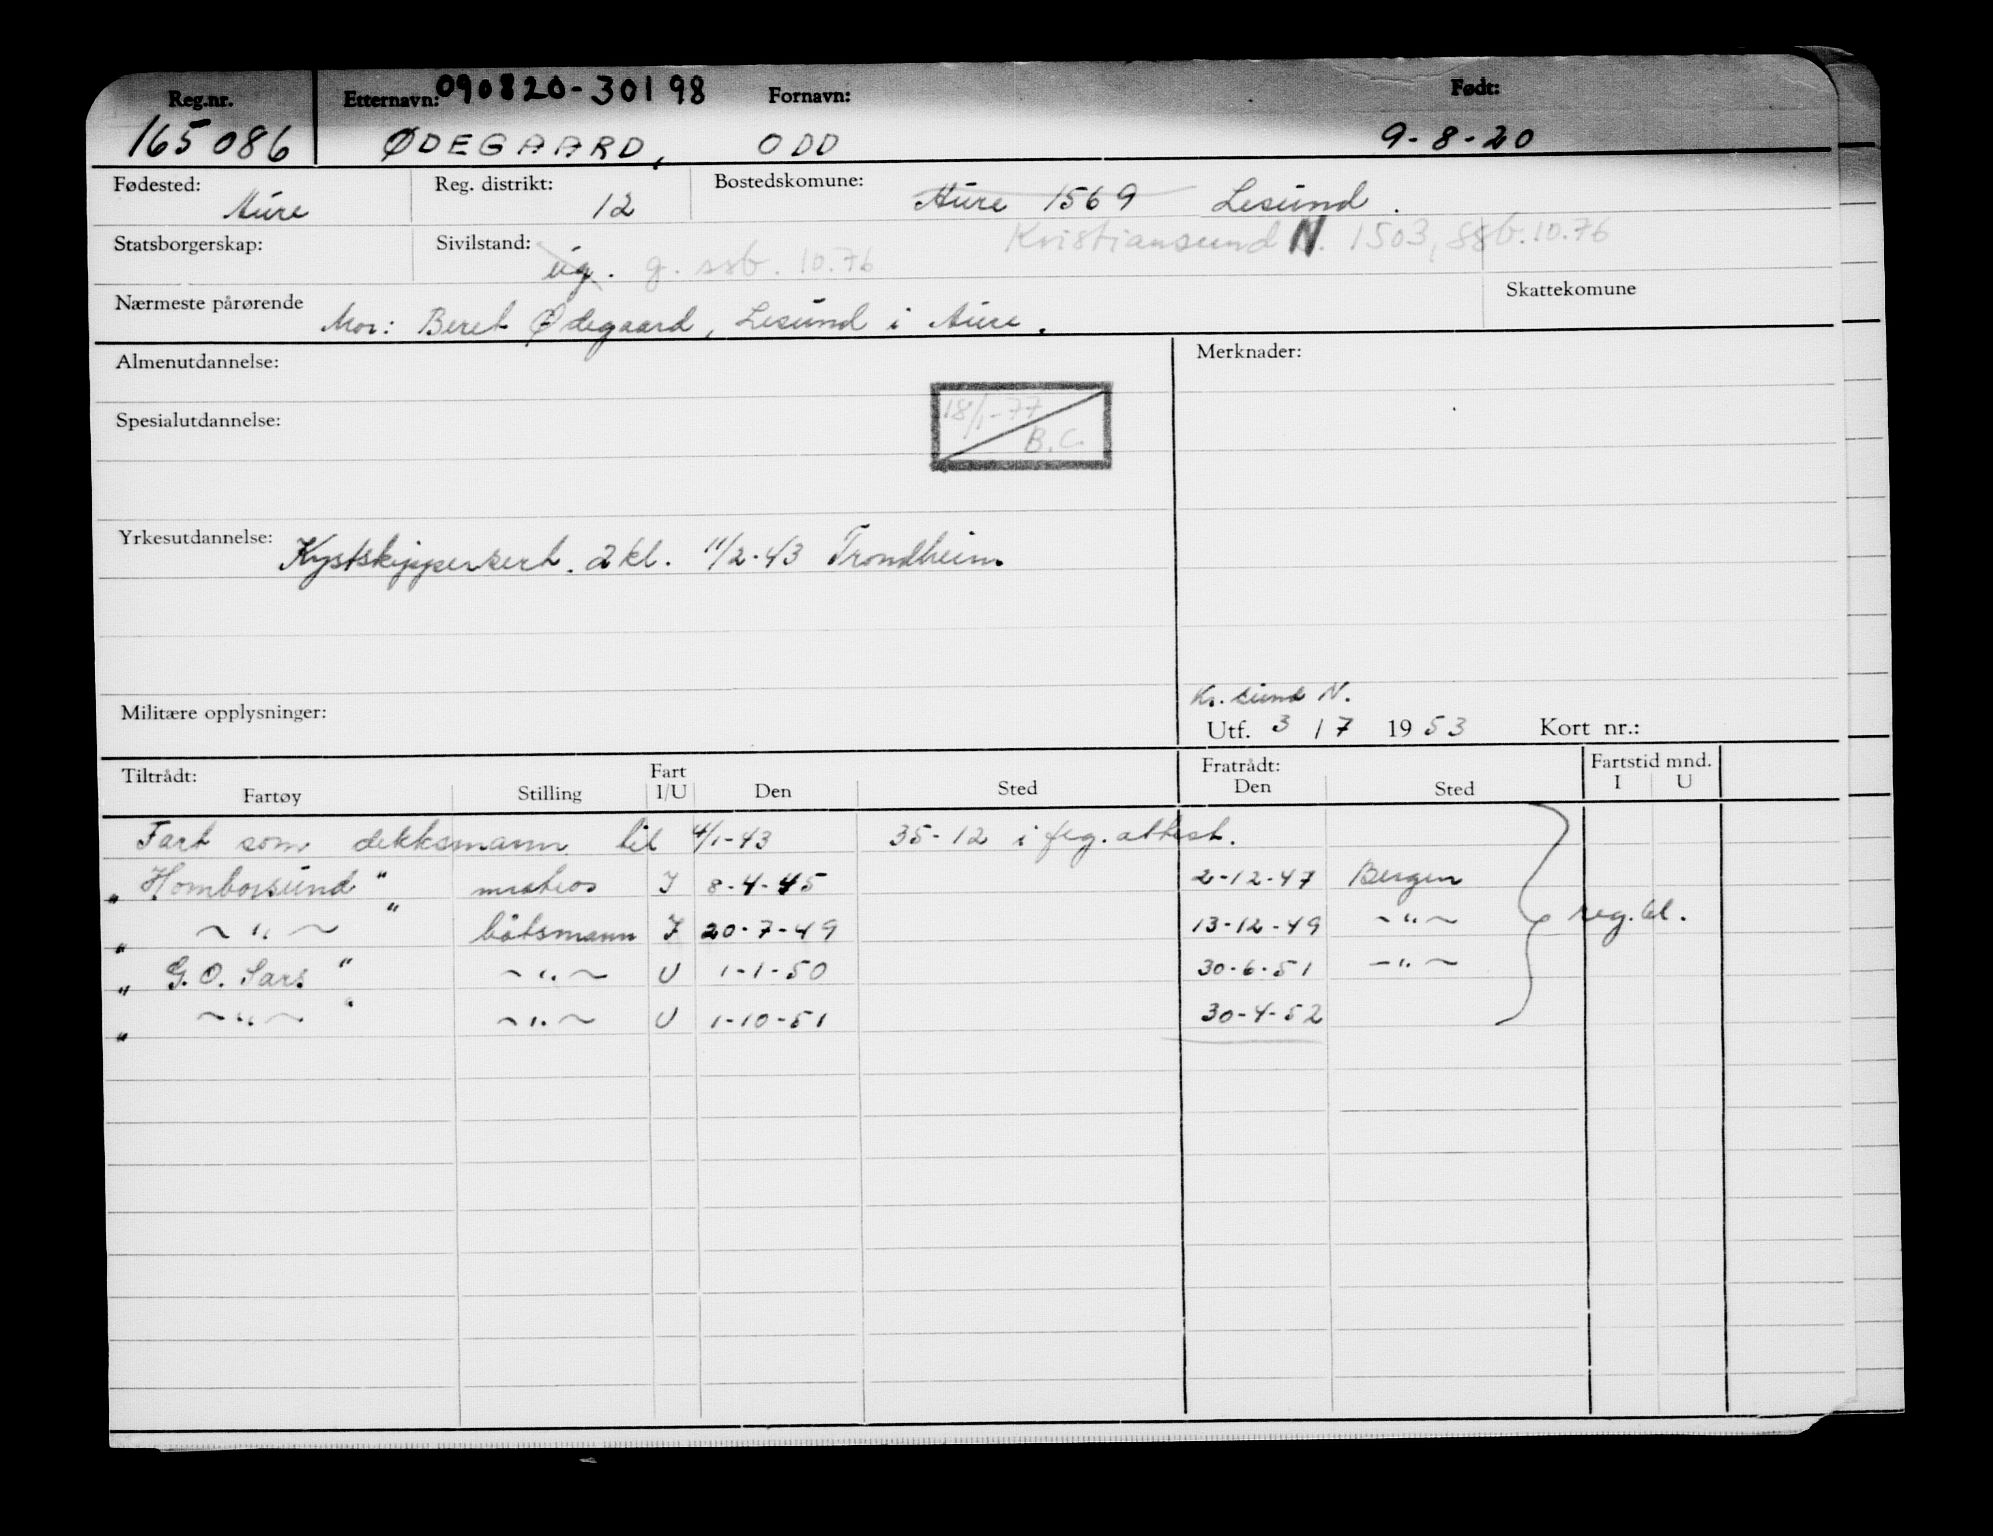 Reg.nr. Etternavn: 090820-30198 Fornavn: Født:
165086 ØDEGAARD, ODD 9-8-20
Fødested: Aure Reg. distrikt: 12 Bostedskomune: Aure 1569 Lesund.
Statsborgerskap: Sivilstand: ug. g. ssb. 10.76 Kristiansund N. 1503, ssb. 10.76
Nærmeste pårørende Mor: Beret Ødegaard, Lesund i Aure. Skattekomune
Almenutdannelse: Merknader:
18/1-77
B.C.
Spesialutdannelse:
Yrkesutdannelse: Kystskippersert. 2 kl. 11/2-43 Trondheim
Kr. sund N.
Militære opplysninger: Utf. 3 / 7 1953 Kort nr.:
Tiltrådt: Fart Fratrådt: Fartstid mnd.
Fartøy Stilling I/U Den Sted Den Sted I U
Fart som dekksmann til 4/1-43 35-12 i flg. attest.
" Homborsund " matros I 8-4-45 2-12-47 Bergen
" ~ " ~ " båtsmann I 20-7-49 13-12-49 ~ " ~ reg.bl.
" G.O. Sars " ~ " ~ U 1-1-50 30-6-51 ~ " ~
" ~ " ~ " ~ " ~ U 1-10-51 30-4-52